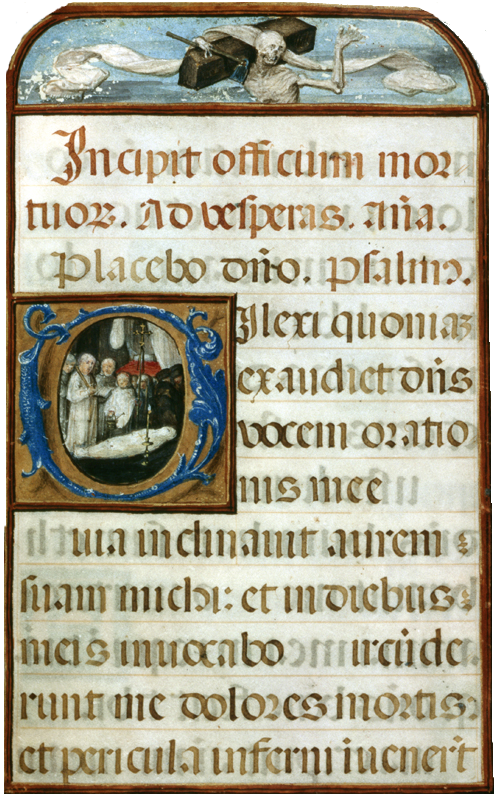 Incipit officium mor
tuoꝝ. Ad vesperas. an̄a.
Placebo dn̄o. psalmꝰ.
DIlexi quoniaz
exaudiet dn̄s
vocem oratio
nis mee
uia inclinauit aurem
suam michi: et in diebus
meis inuocabo ircūde
runt me dolores mortis:
et pericula inferni iuener̄t